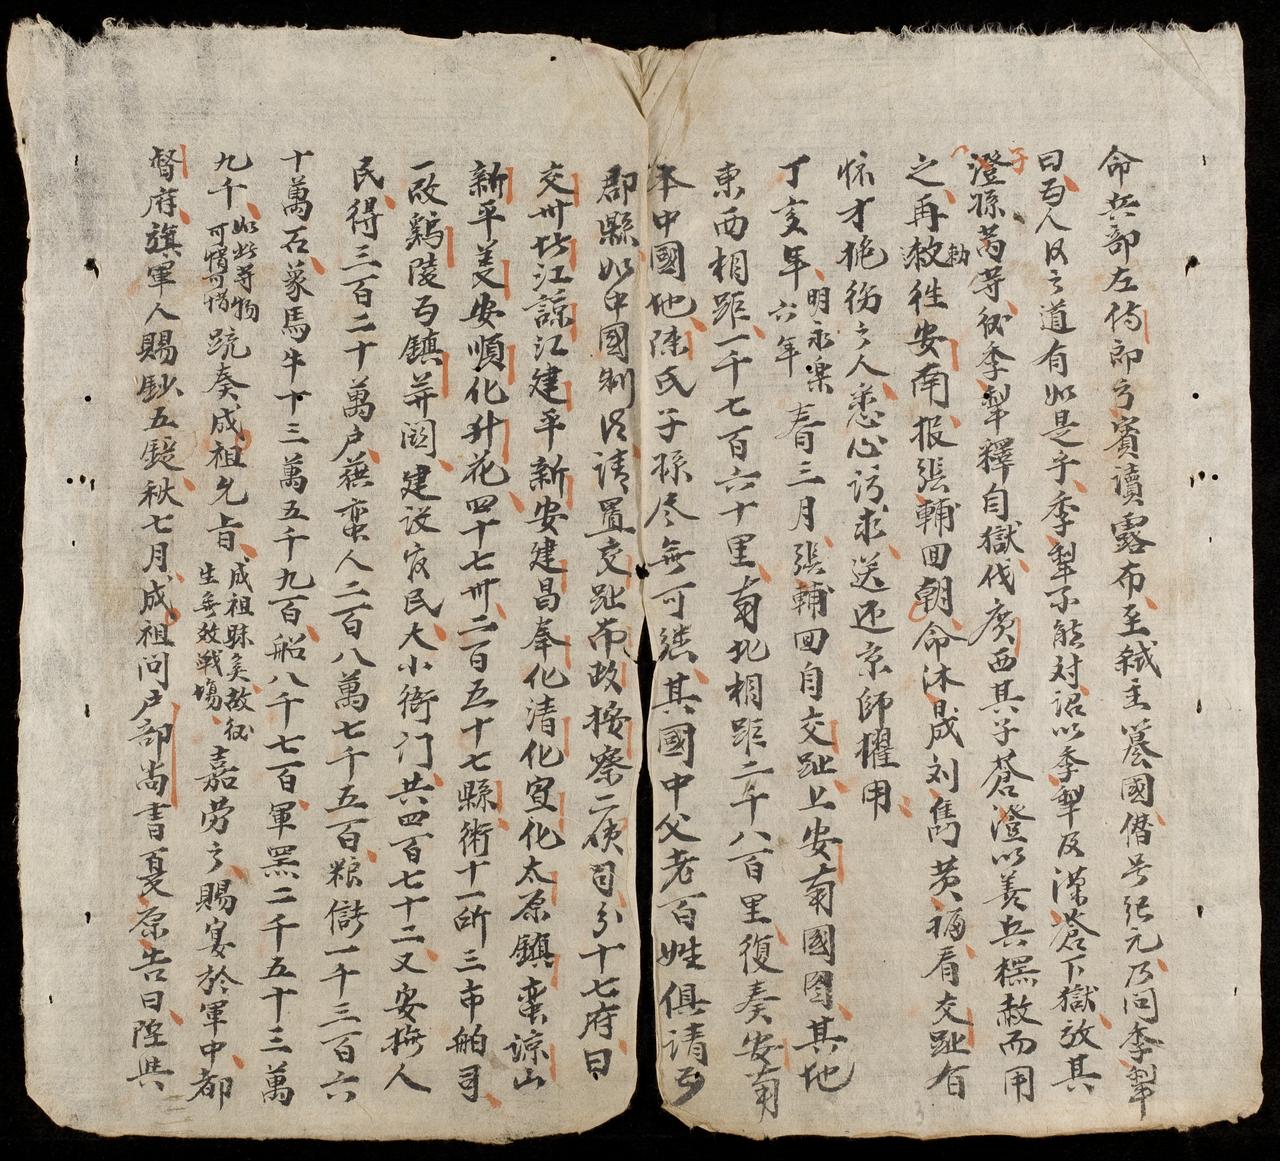 命兵部左侍郎方賓讀露布至弒主簒國僭号紀元乃问季犁
曰爲人臣之道有如是乎季犁不能对诏以季犁及漢蒼下獄放其
子澄孫芮等後季犁釋自獄伐廣西其子蒼澄以善兵楞赦而用
之再赦勑徃安南报張輔回朝命沐晟刘雋黃福看交趾有
怀才抱德之人悉心访求送还京師擢用
丁亥年明永樂六年春三月張輔回自交趾上安南國圖其地
東西相距一千七百六十里南北相距二千八百里復奏安南
本中國地陳氏子孫尽無可继其國中父老百姓俱请为
郡縣如中國制従请置交趾布政按察二使司分十七府曰
交州北江諒江建平新安建昌奉化清化宣化太原鎮蛮諒山
新平羙安順化升花四十七州二百五十七縣術十一所三市舶司
一改鷄陵为鎮并関建設官民大小衙门共四百七十二又安撫人
民得三百二十萬户获蛮人二百八萬七千五百粮儲一千三百六
十萬石象馬牛十三萬五千九百船八千七百軍黑二千五十三萬
九千如此等物可惜可惜疏奏成祖允旨成祖昧矣故後生無效戦塲嘉劳之賜宴於軍中都
督府旗軍人賜鈔五錠秋七月成祖问户部尚書夏原告曰陞與